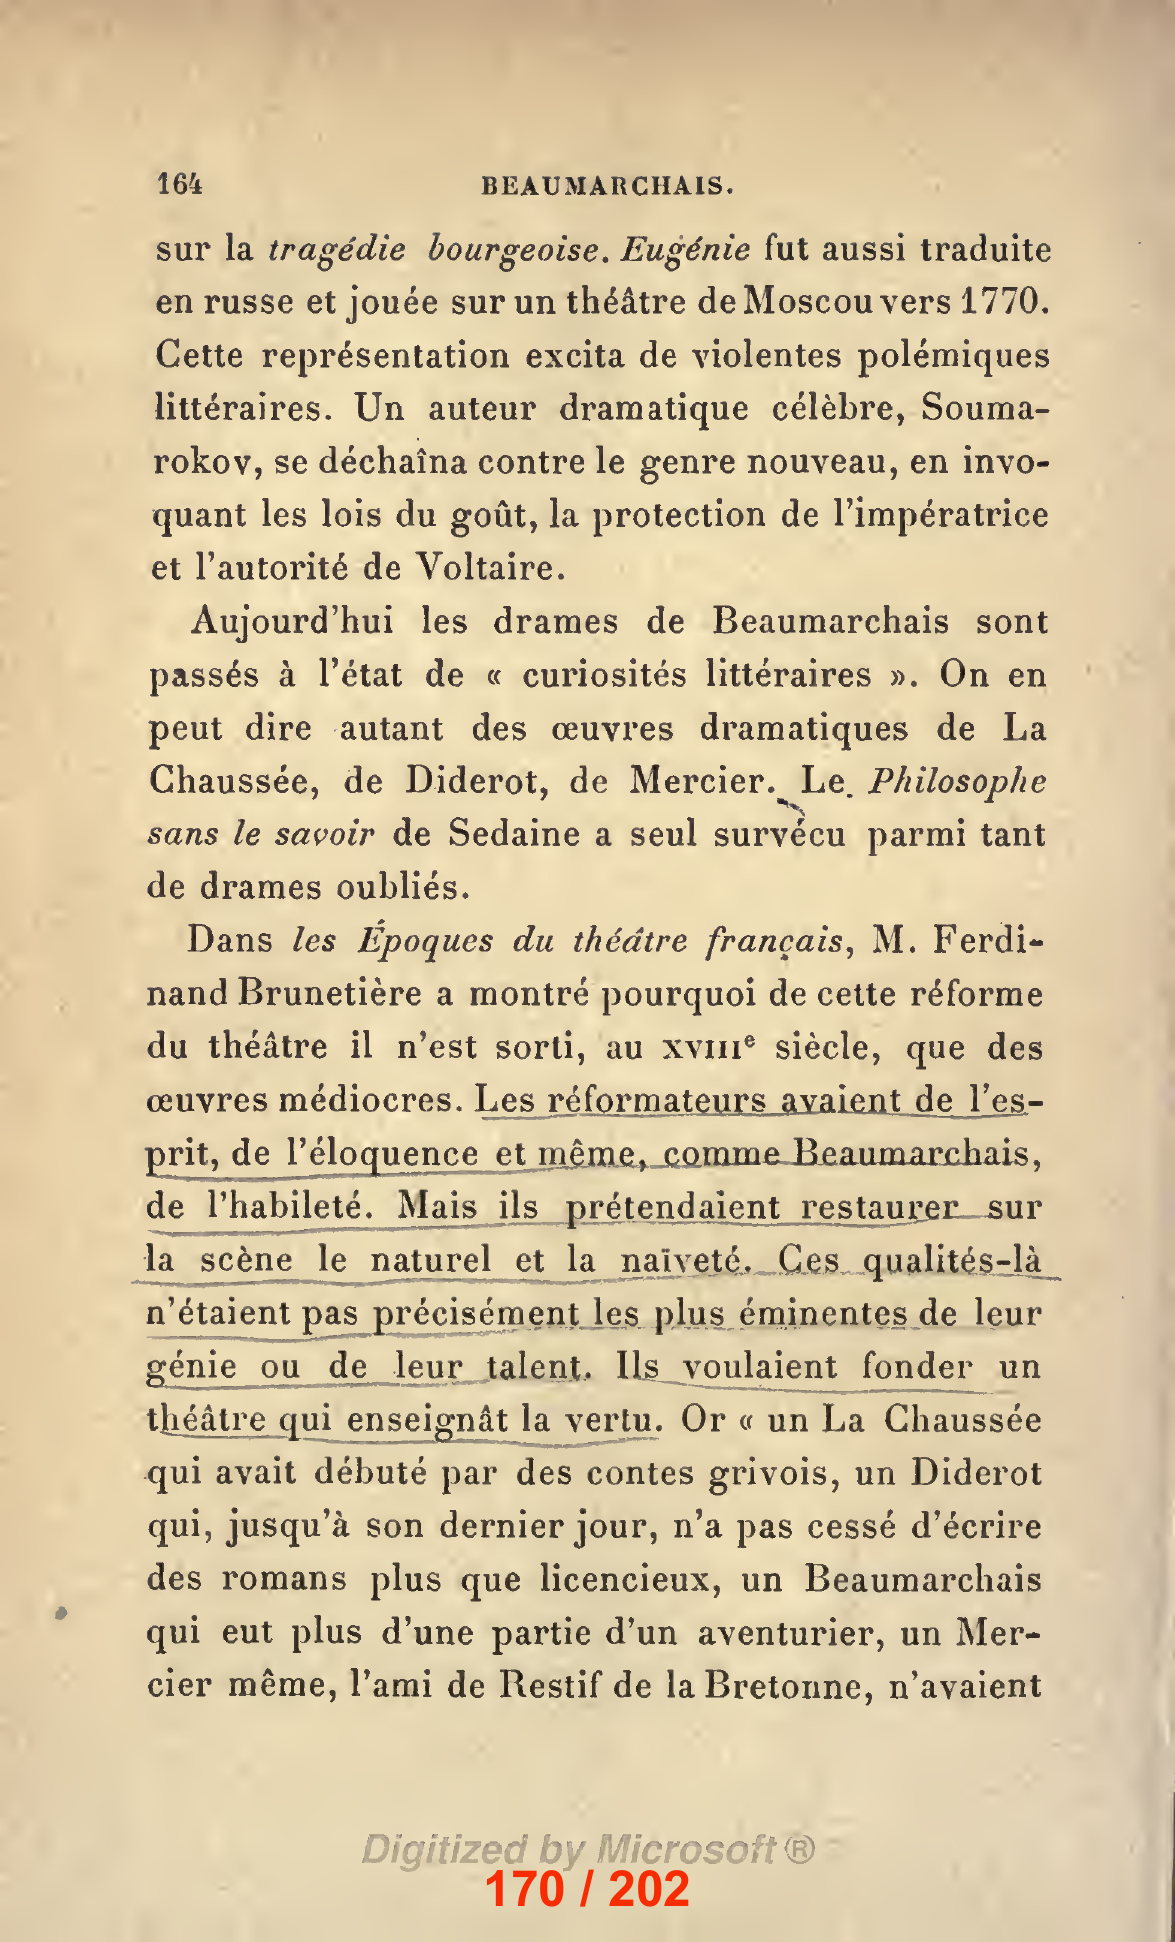 164 BEAUMARCHAIS.
sur la tragédie bourgeoise. Eugénie fut aussi traduite
en russe et jouée sur un théâtre de Moscou vers 1770.
Cette représentation excita de violentes polémiques
littéraires. Un auteur dramatique célèbre, Souma-
rokov, se déchaîna contre le genre nouveau, en invo-
quant les lois du goût, la protection de l'impératrice
et l'autorité de Voltaire.
Aujourd'hui les drames de Beaumarchais sont
passés à l'état de « curiosités littéraires ». On en
peut dire autant des œuvres dramatiques de La
Chaussée, de Diderot, de Mercier. Le Philosophe
sans le savoir de Sedaine a seul survécu parmi tant
de drames oubliés.
Dans les Époques du théâtre français, M. Ferdi-
nand Brunetière a montré pourquoi de cette réforme
du théâtre il n'est sorti, au XVIIIe siècle, que des
œuvres médiocres. Les réformateurs avaient de l'es-
prit, de l'éloquence et même, comme Beaumarchais,
de l'habileté. Mais ils prétendaient restaurer sur
la scène le naturel et la naïveté. Ces qualités-là
n'étaient pas précisément les plus éminentes de leur
génie ou de leur talent. Ils voulaient fonder un
théâtre qui enseignât la vertu. Or « un La Chaussée
qui avait débuté par des contes grivois, un Diderot
qui, jusqu'à son dernier jour, n'a pas cessé d'écrire
des romans plus que licencieux, un Beaumarchais
qui eut plus d'une partie d'un aventurier, un Mer-
cier même, l'ami de Restif de la Bretonne, n'avaient
Digitized by Microsoft ®
170 / 202